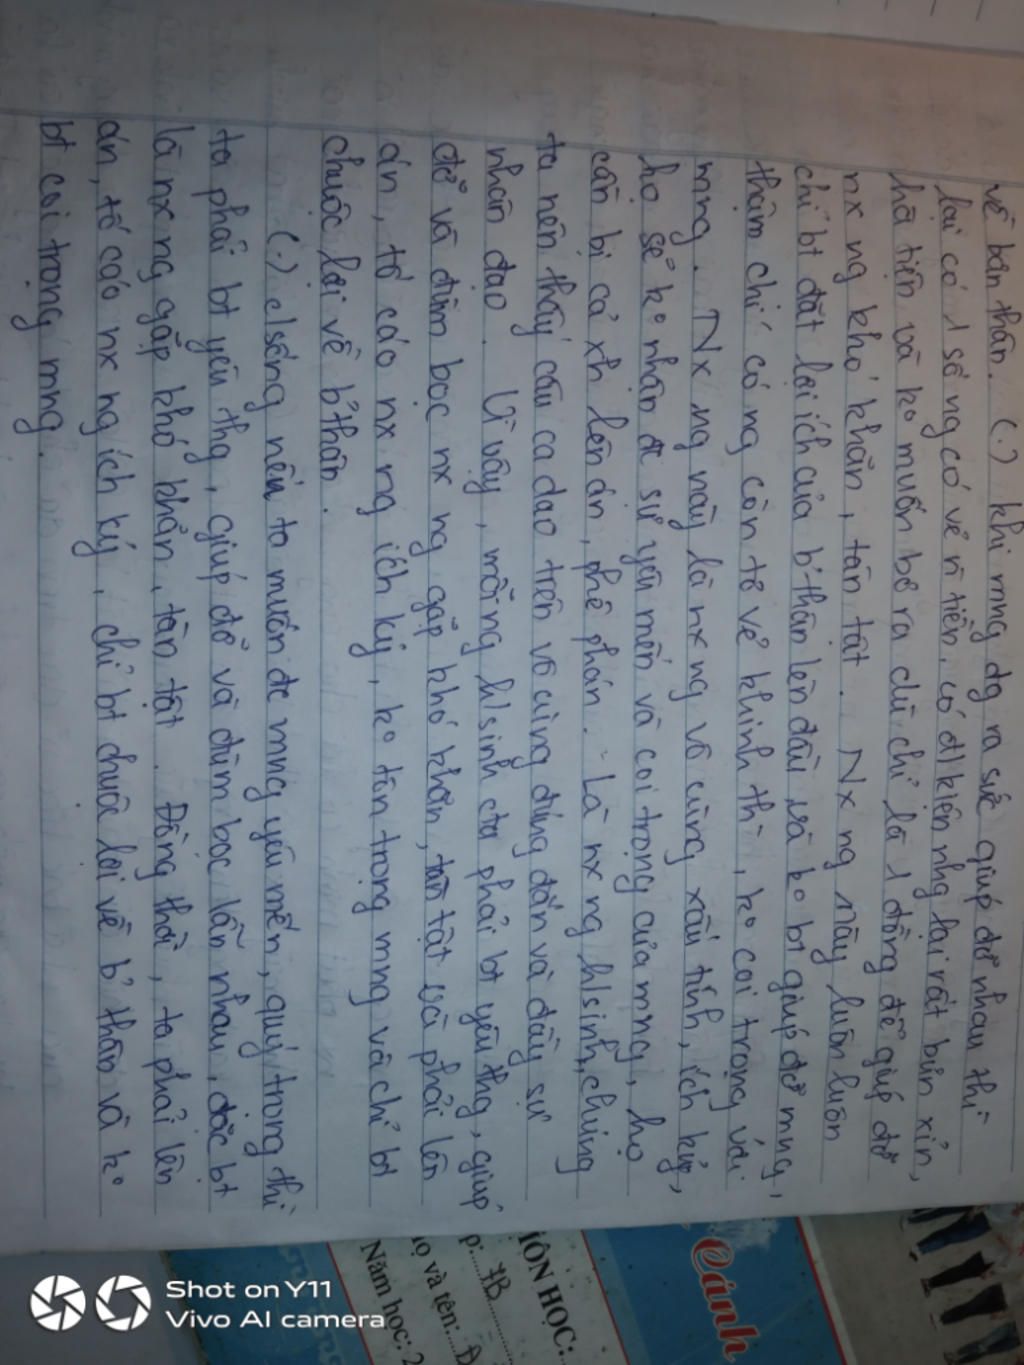 về bản thân. (.) khi mng đg ra sức giúp đỡ nhau thì
lại có 1 số ng có vẻ n tiền, có đ/kiện nhg lại rất bủn xỉn,
hà tiện và ko muốn bỏ ra dù chỉ là 1 đồng để giúp đỡ
nx ng khó khăn, tàn tật. Nx ng này luôn luôn
chỉ bt đặt lợi ích của b'thân lên đầu và ko bt giúp đỡ mng,
thậm chí có ng còn tỏ vẻ khinh thị, ko coi trọng với
mng. Nx ng này là nx ng vô cùng xấu tính, ích kỷ,
họ sẽ ko nhận đc sự yêu mến và coi trọng của mng, họ
cần bị cả xh lên án, phê phán. Là nx ng h/sinh, chúng
ta nên thấy câu ca dao trên vô cùng đúng đắn và đầy sự
nhân đạo. Vì vậy, mỗi ng h/sinh cta phải bt yêu thg, giúp
đỡ và đùm bọc nx ng gặp khó khăn, tàn tật và phải lên
án, tố cáo nx ng ích kỷ, ko tôn trọng mng và chỉ bt
chuộc lợi về b'thân.
(.) c/sống nếu ta muốn đc mng yêu mến, quý trọng thì
ta phải bt yêu thg, giúp đỡ và đùm bọc lẫn nhau, đặc bt
là nx ng gặp khó khăn, tàn tật. Đồng thời, ta phải lên
án, tố cáo nx ng ích kỷ, chỉ bt chuộc lợi về b' thân và ko
bt coi trọng mng.
Cánh
MÔN HỌC:
p: 7B
ọ và tên: Đ
Năm học: 2
Shot on Y11
Vivo AI camera